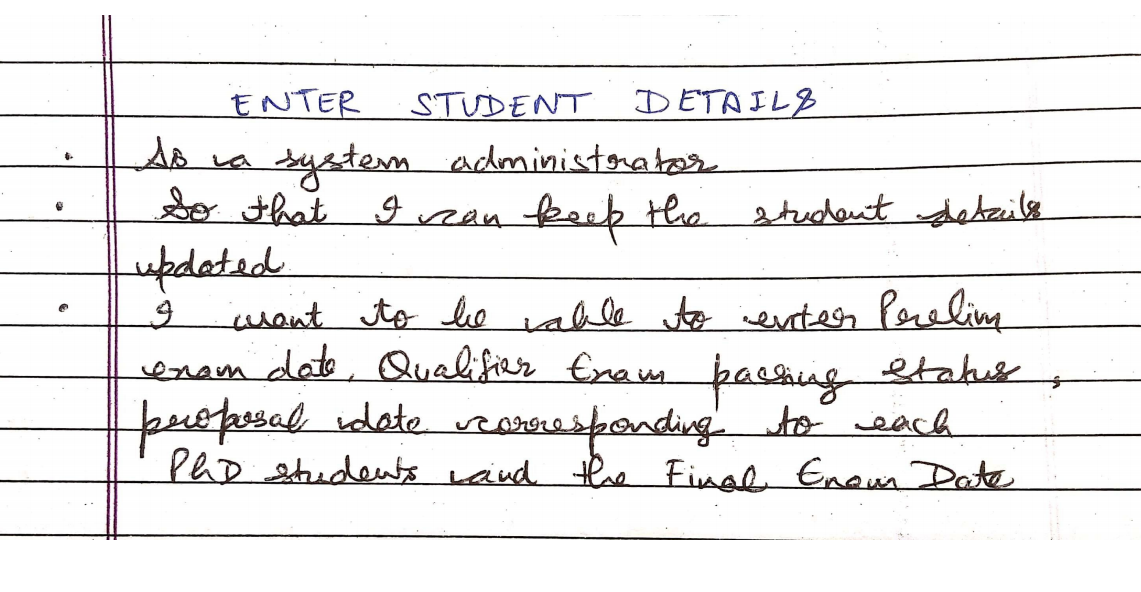 ENTER STUDENT DETAILS
• As a system administrator
• So that I can keep the student details
updated
• I want to be able to enter Prelim
exam date, Qualifier Exam passing status,
proposal date corresponding to each
PhD students and the Final Exam Date